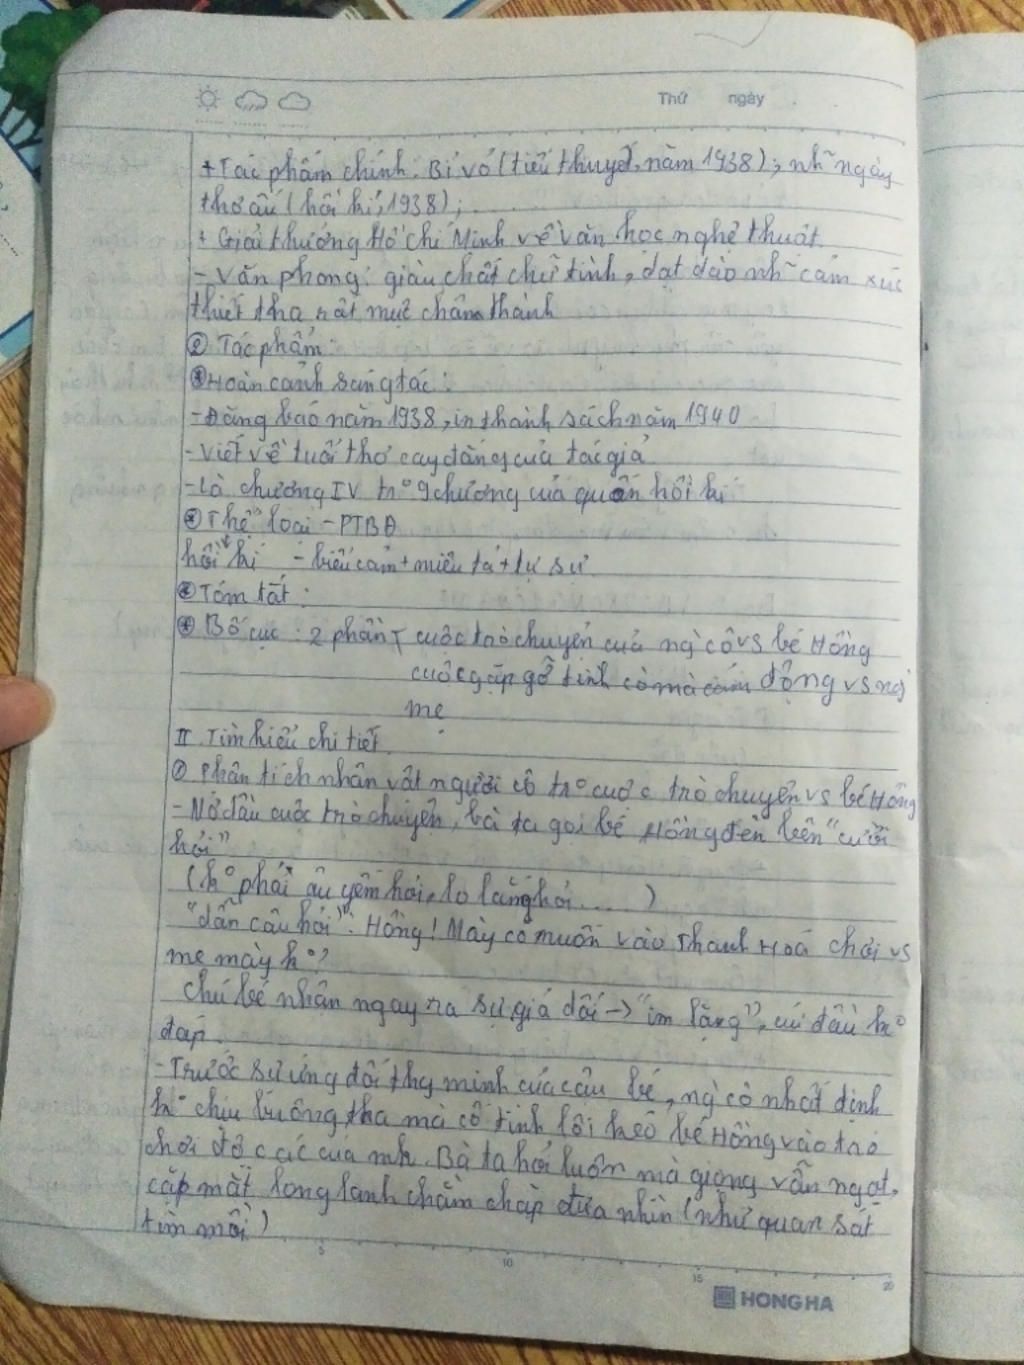 Thứ ngày
+ Tác phẩm chính: Bỉ vỏ (tiểu thuyết, năm 1938); nh~ ngày
thơ ấu (hồi kí, 1938);
+ Giải thưởng Hồ Chí Minh về văn học nghệ thuật
- Văn phong: giàu chất chữ tình, dạt dào nh~ cảm xúc
thiết tha rất mực chân thành
② Tác phẩm:
* Hoàn cảnh sáng tác:
- Đăng báo năm 1938, in thành sách năm 1940
- Viết về tuổi thơ cay đắng của tác giả
- Là chương IV tr° 9 chương của quấn hồi kí
* Thể loại - PTBĐ
hồi kí - biểu cảm + miêu tả + tự sự
* Tóm tắt:
* Bố cục: 2 phần cuộc trò chuyện của ng` cô vs bé Hồng
cuộc gặp gỡ động vs ng`
mẹ
II Tìm hiểu chi tiết
① Phân tích nhân vật người cô tr° cuộc trò chuyện vs bé Hồng
- Mở đầu cuộc trò chuyện, bà ta gọi bé Hồng đến bên "cười
hỏi"
(k° phải âu yếm hỏi, lo lắng hỏi .... )
"dẫn câu hỏi": Hồng! Mày có muốn vào Thanh Hoá chơi vs
mẹ mày k°?
chú bé nhận ngay ra sự giả dối -> "im lặng", cúi đầu k°
đáp.
- Trước sự ứng đối thg minh của cậu bé, ng` cô nhất định
k° chịu buông tha mà cố tình lôi kéo bé Hồng vào trò
chơi độc ác của mh. Bà ta hỏi luôn mà giọng vẫn ngọt,
cặp mắt long lanh chằm chặp đưa nhìn (như quan sát
tìm mồi)
5 10 15 20
HONG HA